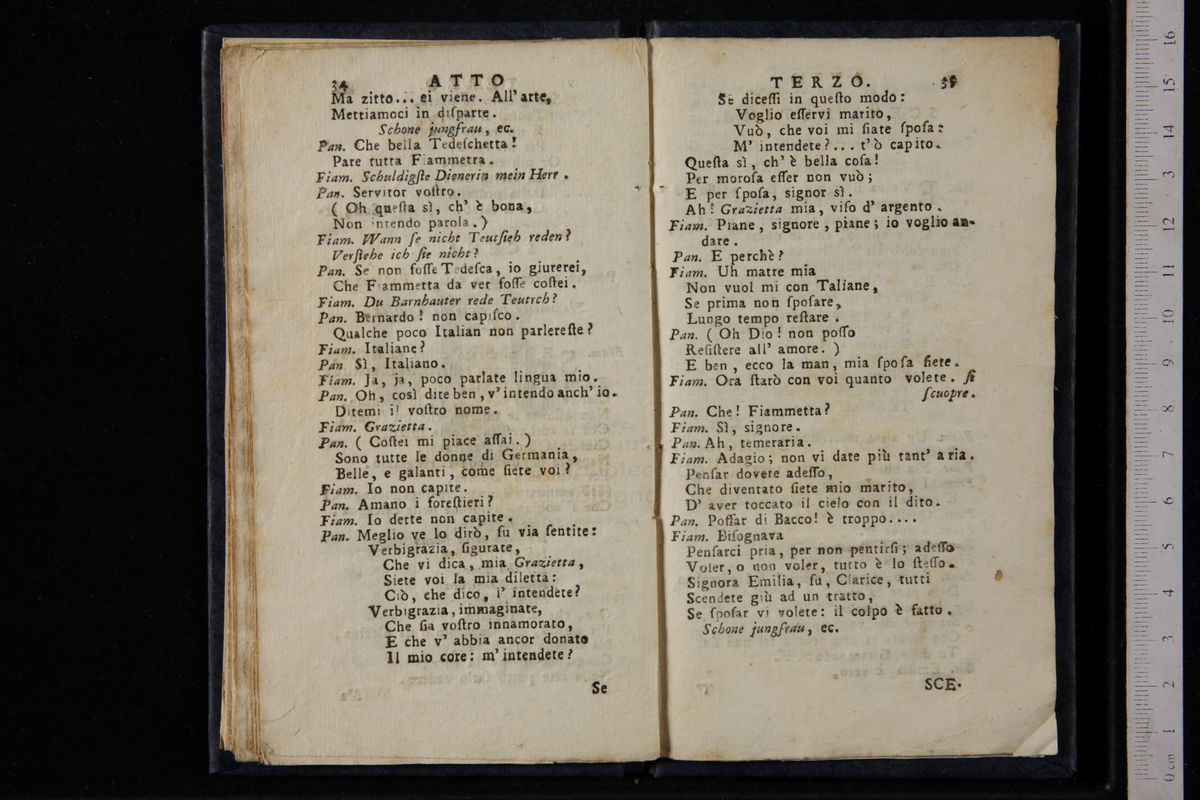 34 ATTO
Ma zitto... ei viene. All' arte,
Mettiamoci in diſparte.
Schone jungfrau, ec.
Pan. Che bella Tedeſchetta!
Pare tutta Fiammetra.
Fiam. Schuldigſte Dienerin mein Herr.
Pan. Servitor voſtro.
( Oh queſta sì, ch' è bona,
Non intendo parola. )
Fiam. Wann ſe nicht Teutſieh reden?
Verſtehe ich ſie nicht?
Pan. Se non foſſe Tedeſca, io giurerei,
Che Fiammetta da ver foſſe coſtei.
Fiam. Du Barnhauter rede Teutrch?
Pan. Bernardo! non capiſco.
Qualche poco Italian non parlereſte?
Fiam. Italiane?
Pan Sì, Italiano.
Fiam. Ja, ja, poco parlate lingua mio.
Pan. Oh, così dite ben, v' intendo anch' io.
Ditemi il voſtro nome.
Fiam. Grazietta.
Pan. ( Coſtei mi piace aſſai. )
Sono tutte le donne di Germania,
Belle, e galanti, come ſiete voi?
Fiam. Io non capite.
Pan. Amano i foreſtieri?
Fiam. Io dette non capite.
Pan. Meglio ve lo dirò, fu via ſentite:
Verbigrazia, figurate,
Che vi dica, mia Grazietta,
Siete voi la mia diletta:
Ciò, che dico, l' intendete?
Verbigrazia, immaginate,
Che ſia voſtro innamorato,
E che v' abbia ancor donato
Il mio core: m' intendete?
Se
TERZO. 35
Se diceſſi in queſto modo:
Voglio eſſervi marito,
Vuò, che voi mi ſiate ſpoſa:
M' intendete?... t' ò capito.
Queſta sì, ch' è bella coſa!
Per moroſa eſſer non vuò;
E per ſpoſa, signor sì.
Ah! Grazietta mia, viſo d' argento.
Fiam. Piane, signore, piane; io voglio an-
dare.
Pan. E perchè?
Fiam. Uh matre mia
Non vuol mi con Taliane,
Se prima non ſpoſare,
Lungo tempo reſtare.
Pan. ( Oh Dio! non poſſo
Reſiſtere all' amore. )
E ben, ecco la man, mia ſpoſa ſiete.
Fiam. Ora ſtarò con voi quanto volete. ſi
ſcuopre.
Pan. Che! Fiammetta?
Fiam. Sì, signore.
Pan. Ah, temeraria.
Fiam. Adagio; non vi date più tant' aria.
Penſar dovete adeſſo,
Che diventato ſiete mio marito,
D' aver toccato il cielo con il dito.
Pan. Poſſar di Bacco! è troppo....
Fiam. Biſognava
Penſarci pria, per non pentirſi; adeſſo
Voler, o non voler, tutto è lo ſteſſo.
Signora Emilia, ſu, Clarice, tutti
Scendete giù ad un tratto,
Se ſpoſar vi volete: il colpo è fatto.
Schone jungfrau, ec.
SCE.
16
15
14
13
12
11
10
9
8
7
6
5
4
3
2
1
0 cm